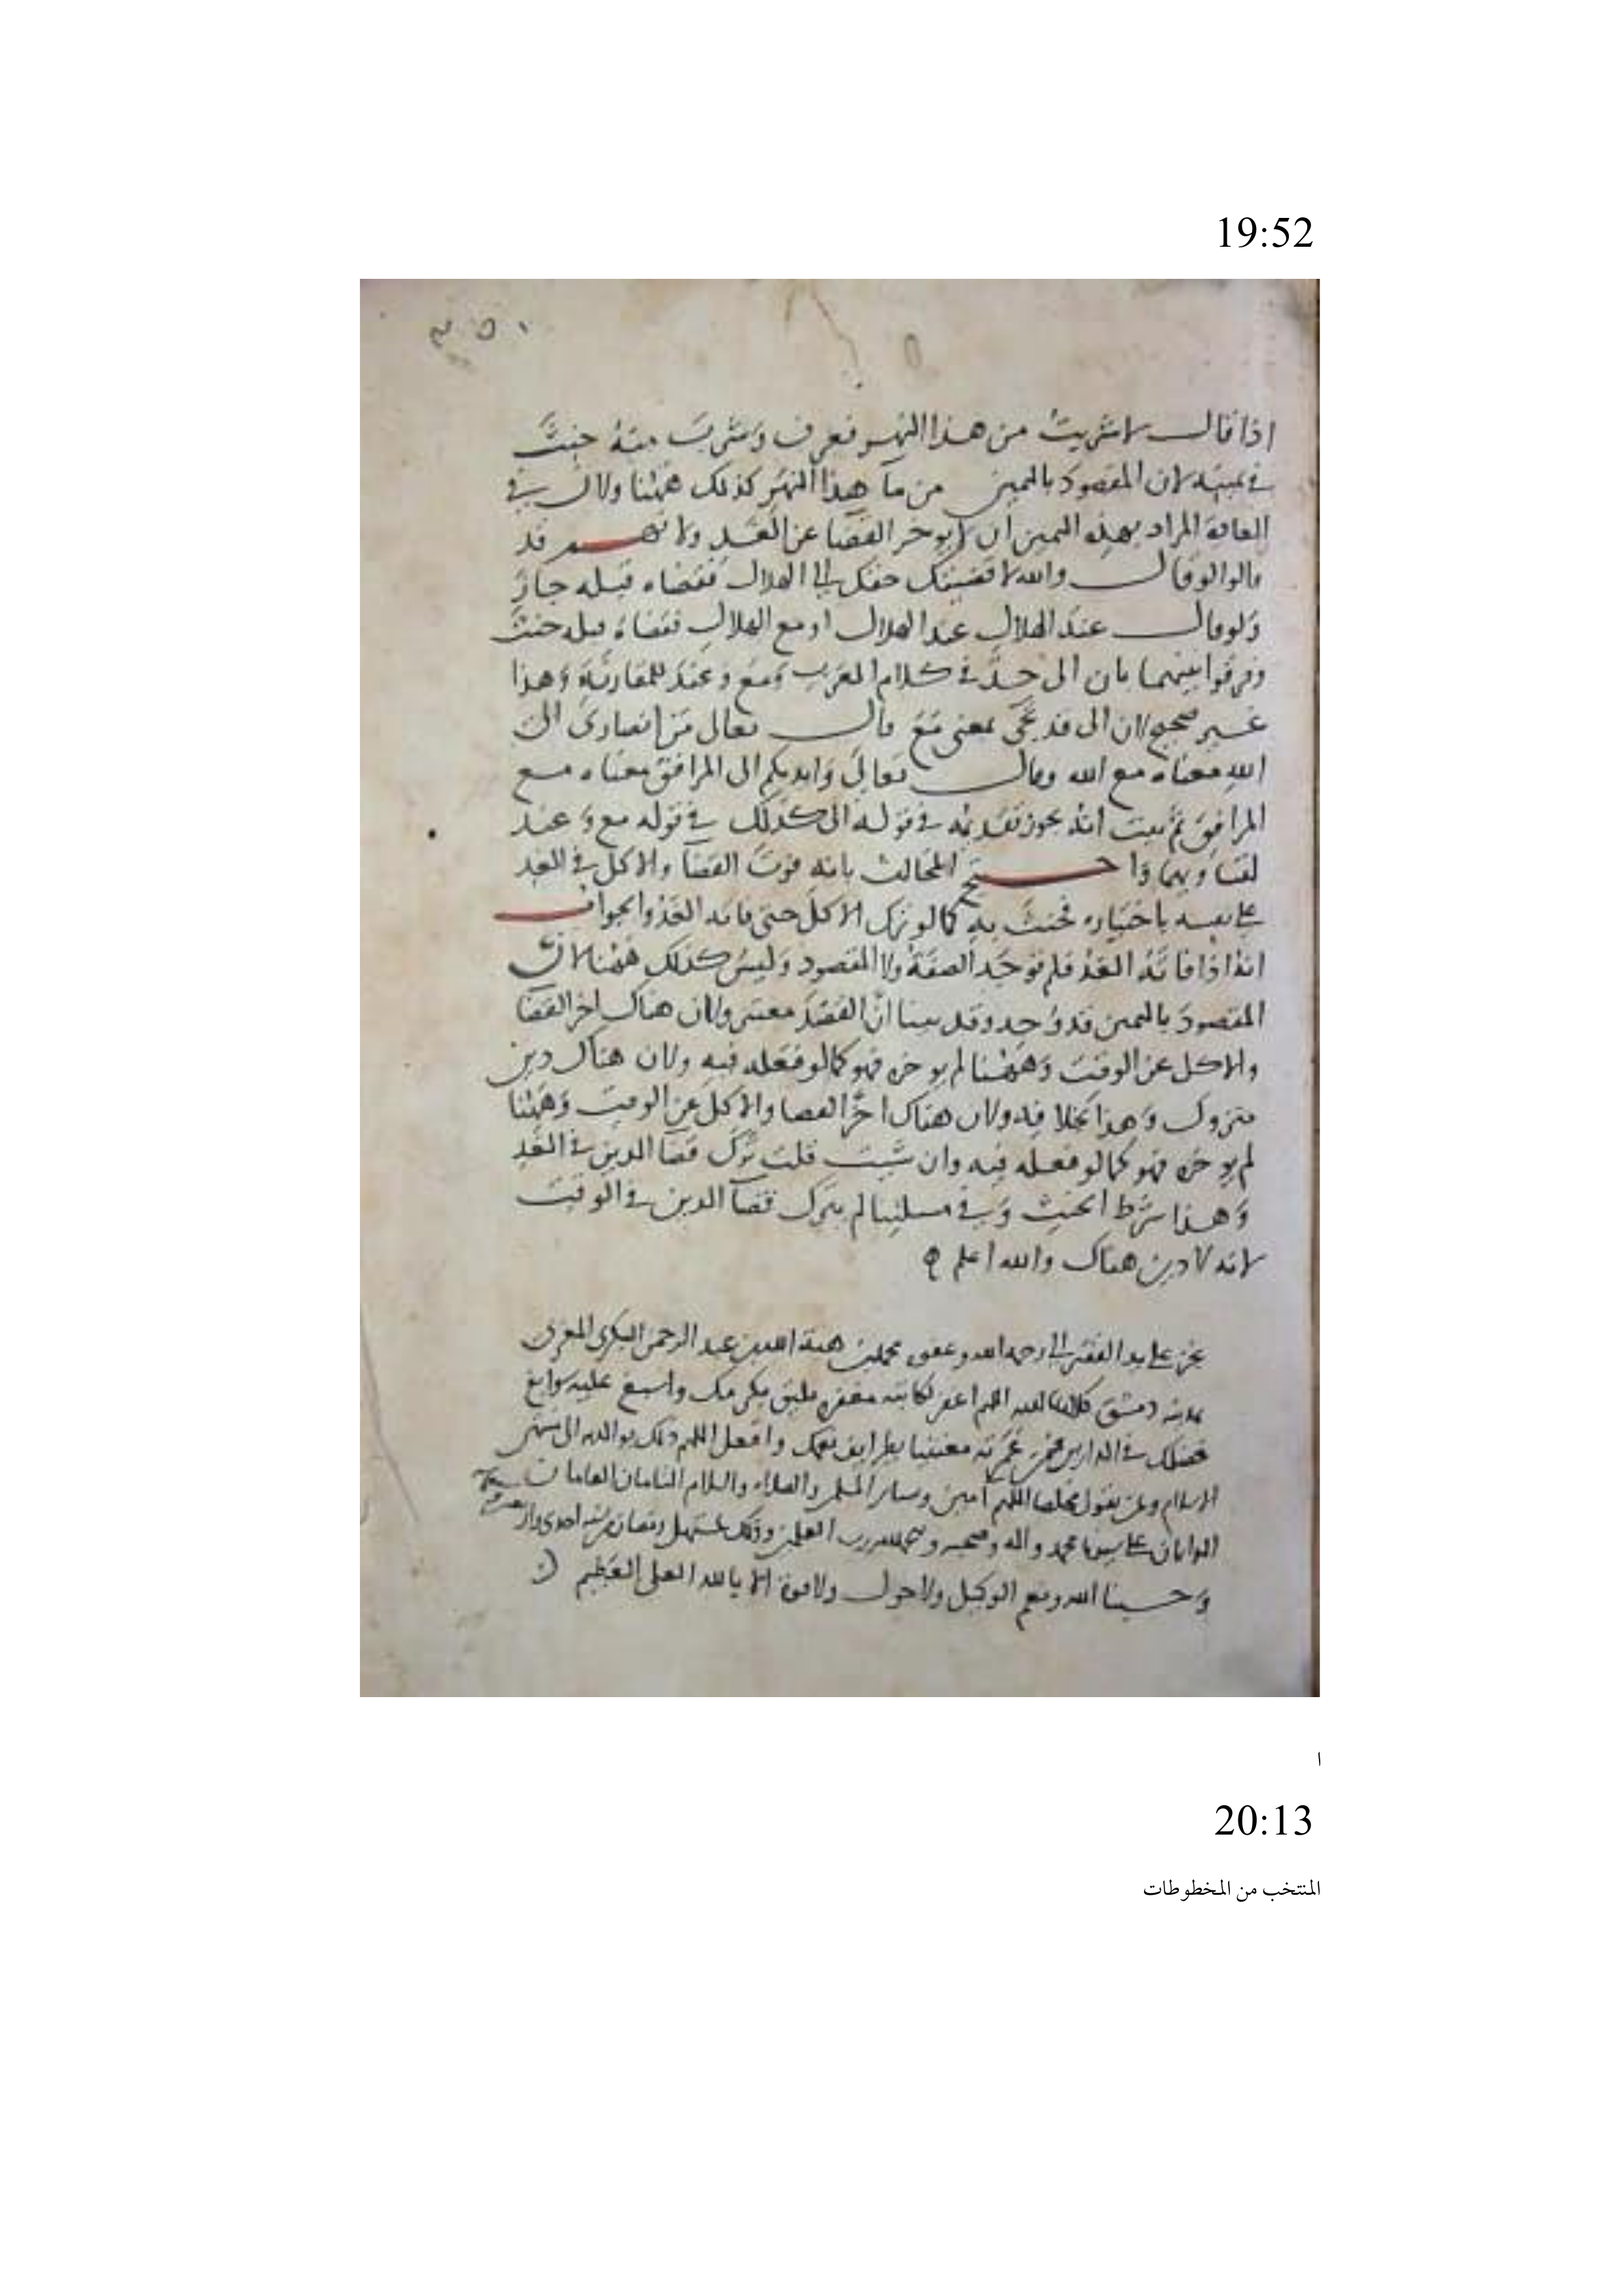 19:52
اذا قال لا شربت من هذا النهر فغرف وشرب منه حنث
في يمينه لان المقصود باليمين من ماء هذا النهر كذلك ههنا ولان في
العادة المراد بهذه اليمين ان لا يوخر القضا عن الغد ولانهم قد
قالوا لو قال والله لاقضينك حقك الى الهلال فقضاه قبله جاز
ولو قال عند الهلال عند الهلال او مع الهلال فقضاه قبله حنث
وفرقوا بينهما بان الى حد في كلام العرب ومع وعند للمقارنة وهذا
غير صحيح لان الى قد تجى بمعنى مع قال تعالى من انصارى الى
الله معناه مع الله وقال تعالى وايديكم الى المرافق معناه مع
المرافق ثم يجوز تقديمه في قوله الى كذلك في قوله مع وعند
لتساويهما واحتج المخالف بانه فوت القضا والاكل في الغد
على نفسه باختياره فحنث به كما لو ترك الاكل حتى فاته الغد والجواب
انه اذا فاته الغد فلم توجد الصفة ولا المقصود وليس كذلك ههنا لان
المقصود باليمين قد وجد وقد بينا ان القصد معتبر ولان هناك اخر القضا
والاكل عن الوقت وههنا لم يوخره فهو كما لو فعله فيه ولان هناك دين
متروك وهذا بخلافه ولان هناك اخر القضا والاكل عن الوقت وههنا
لم يوخره فهو كما لو فعله فيه وان شيت قلت ترك قضا الدين في الغد
وهذا شرط الحنث وفي مسلتنا لم يترك قضا الدين في الوقت
لانه لا دين هناك والله اعلم
نجز على يد الفقير الى رحمة الله وعفوه محمد بن هبة الله بن عبد الرحمن البكري المغربي
بمدينة دمشق اللهم اغفر لكاتبه مغفرة تليق بكرمك واسبغ عليه سوابغ
فضلك في الدارين وافعل اللهم ذلك بوالديه
الاسلام ومن يقول مخلصا اللهم امين وساير المسلمين والصلاه والسلام التامان العامان
على سيدنا محمد واله وصحبه والحمد لله رب العلمين وذلك مستهل رمضان من سنة احدى
وحسبنا الله ونعم الوكيل ولا حول ولا قوة الا بالله العلى العظيم
ا
20:13
المنتخب من المخطوطات